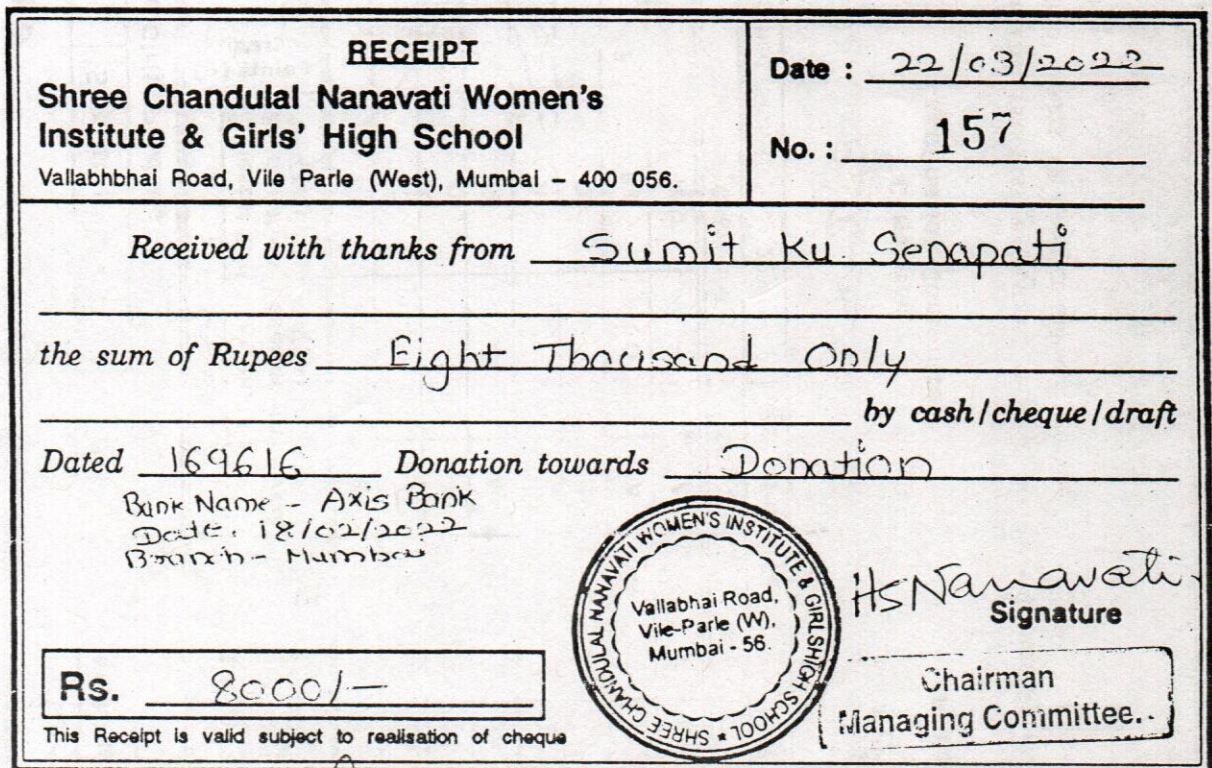 RECEIPT
Shree Chandulal Nanavati Women's
Institute & Girls' High School
Vallabhbhai Road, Vile Parle (West), Mumbai – 400 056.
Date : 22/03/2022
No. : 157
Received with thanks from Sumit Ku. Senapati
the sum of Rupees Eight Thousand Only
by cash/cheque/draft
Dated 169616 Donation towards Donation
Bank Name - Axis Bank
Date. 18/02/2022
Branch - Mumbai
SHREE CHANDULAL NANAVATI WOMEN'S INSTITUTE & GIRLSHIGH SCHOOL ★
Vallabhai Road,
Vile-Parle (W),
Mumbai - 56.
HSNanavati
Signature
Chairman
Managing Committee.
Rs. 8000/-
This Receipt is valid subject to realisation of cheque